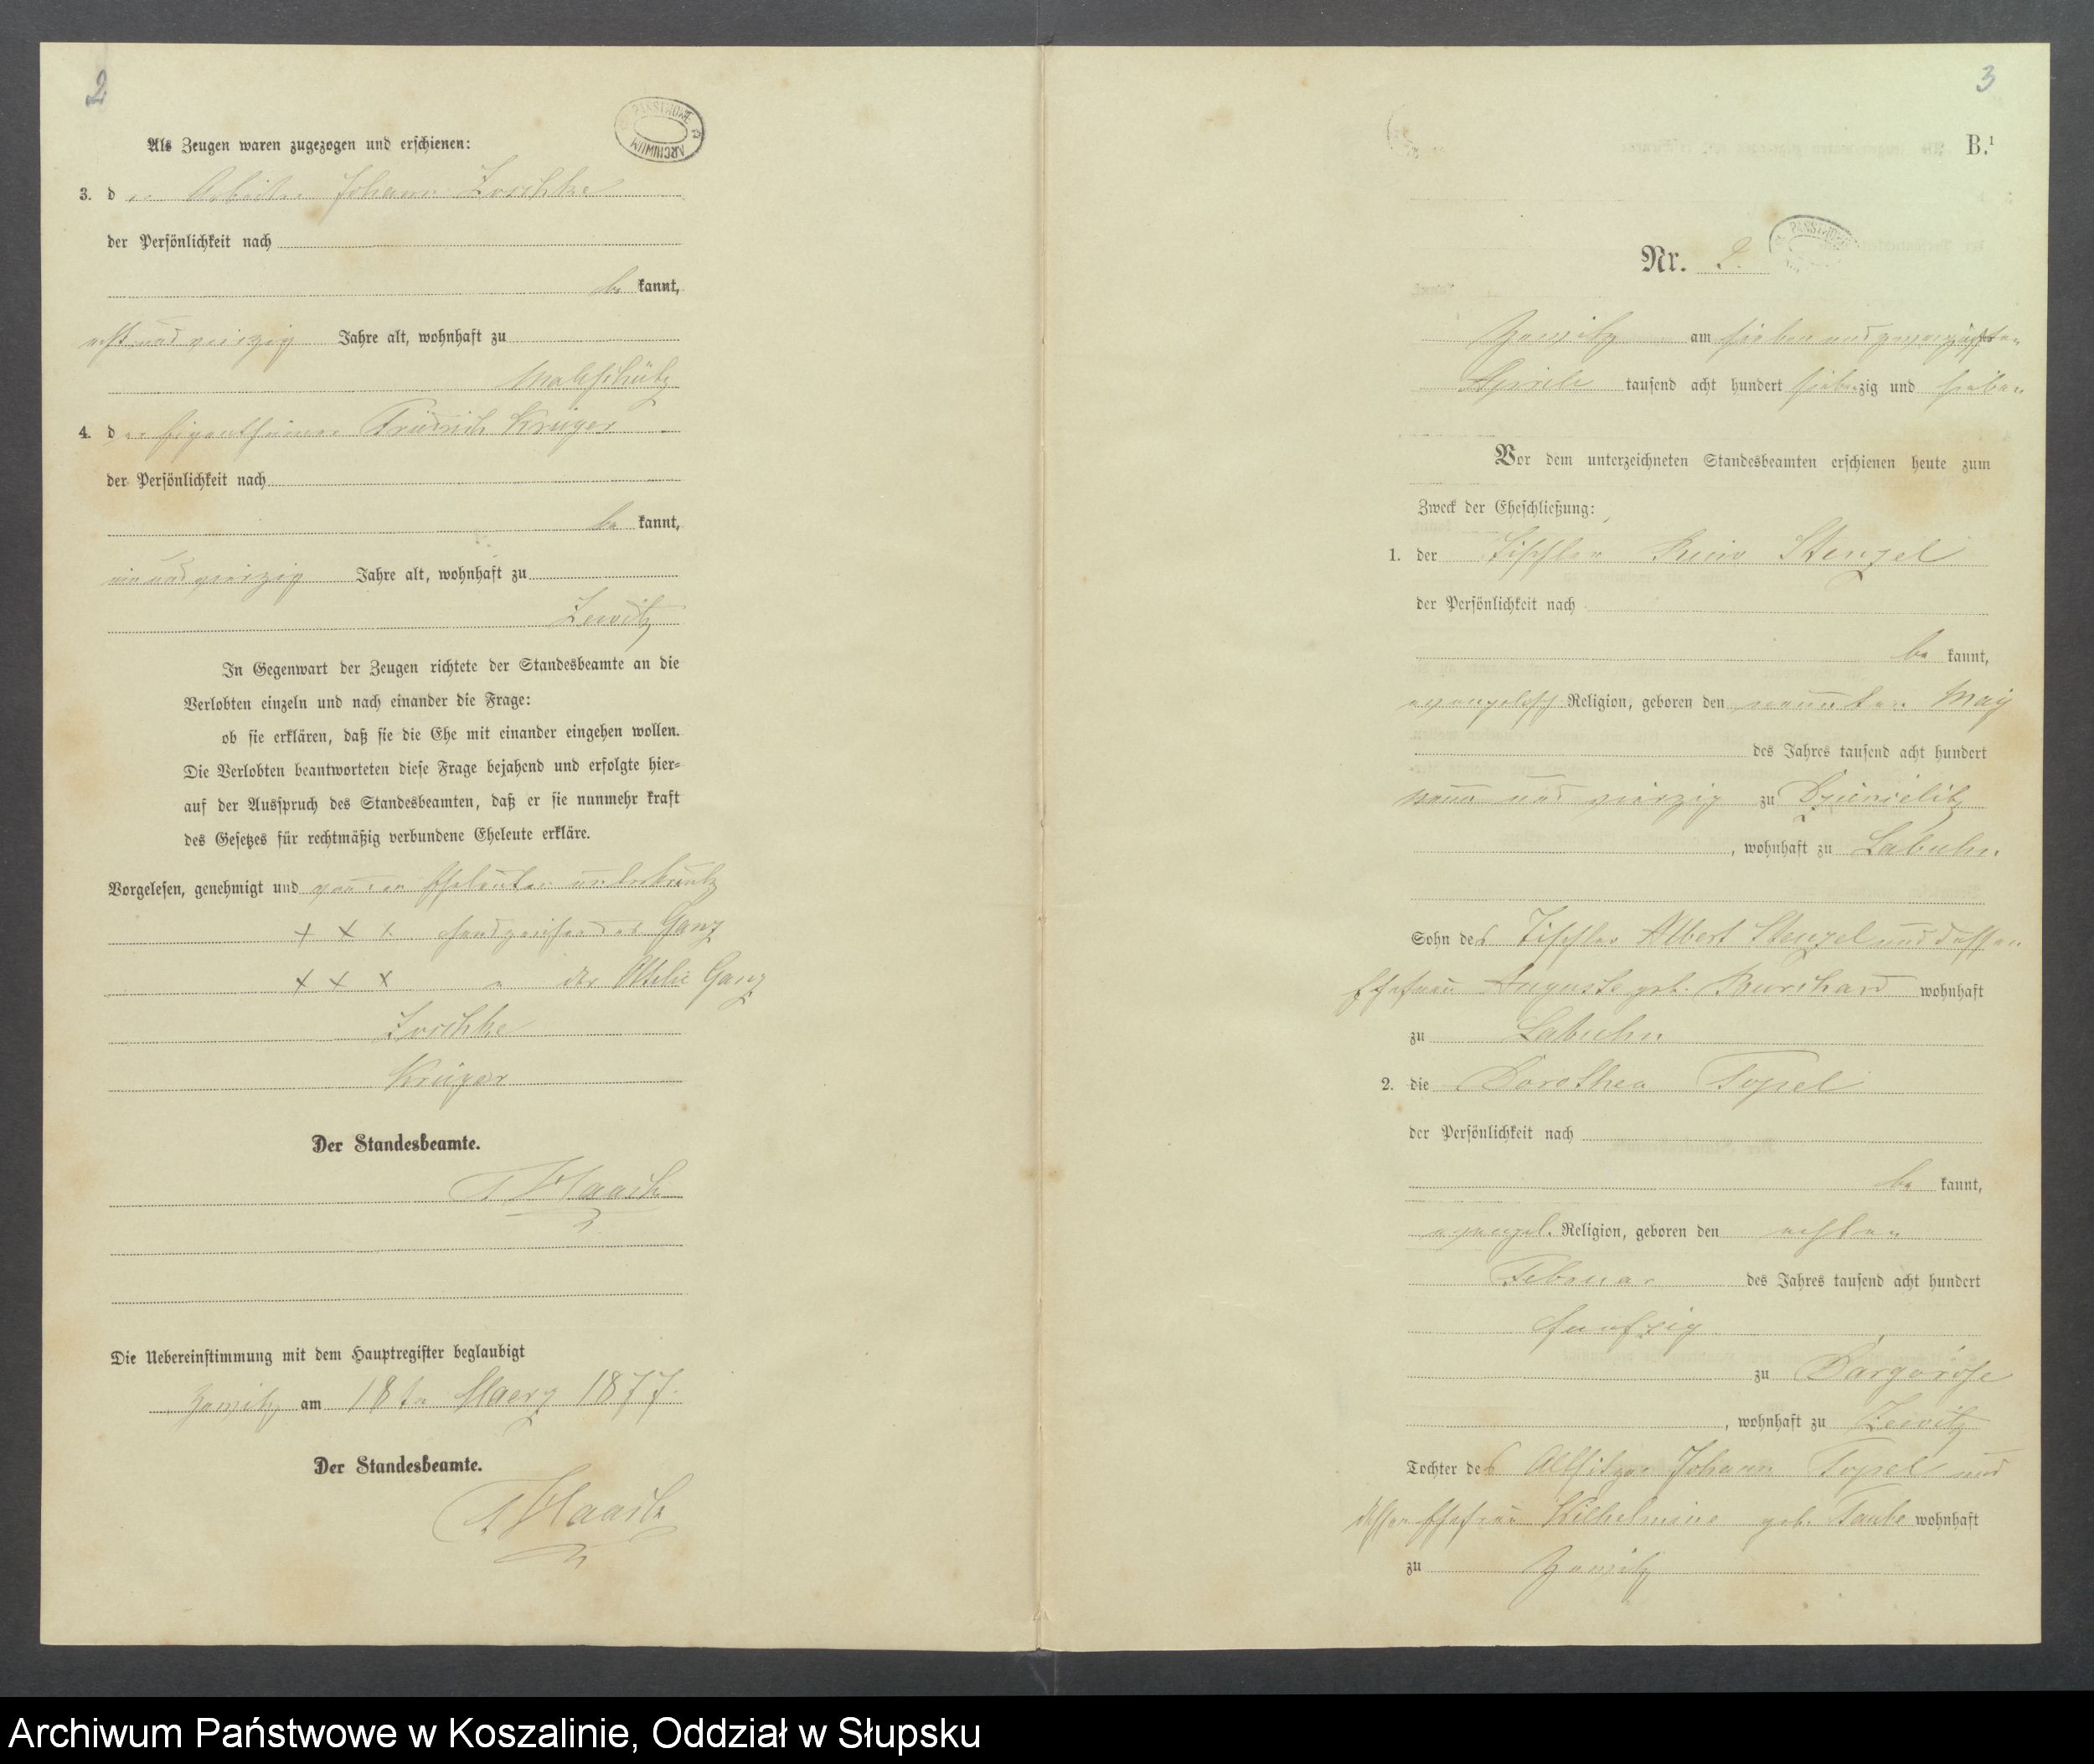 2
Als Zeugen waren zugezogen und erschienen:
PAŃSTWOWE
ARCHIWUM
3. der Arbeiter Johann Zoschke
der Persönlichkeit nach
be kannt,
acht und vierzig Jahre alt, wohnhaft zu
Malschütz
4. der Eigenthümer Friedrich Krüger
der Persönlichkeit nach
be kannt,
und vierzig Jahre alt, wohnhaft zu
Zewitz
In Gegenwart der Zeugen richtete der Standesbeamte an die
Verlobten einzeln und nach einander die Frage:
ob sie erklären, daß sie die Ehe mit einander eingehen wollen.
Die Verlobten beantworteten diese Frage bejahend und erfolgte hier=
auf der Ausspruch des Standesbeamten, daß er sie nunmehr kraft
des Gesetzes für rechtmäßig verbundene Eheleute erkläre.
Vorgelesen, genehmigt und von den Eheleuten unterkreutz
+ x x Handzeichen des Ganz
+ x x " der Ottilie Ganz
Zoschke
Krüger
Der Standesbeamte.
Haack
Die Uebereinstimmung mit dem Hauptregister beglaubigt
Zewitz am 18ten Maerz 1877.
Der Standesbeamte.
Haack
3
B.1
Nr. 2.
Zewitz am sieben und zwanzigsten
Aprill tausend acht hundert siebenzig und sieben
Vor dem unterzeichneten Standesbeamten erschienen heute zum
Zweck der Eheschließung:
1. der Tischler Stenzel
der Persönlichkeit nach
be kannt,
evangelisch Religion, geboren den neunten May
des Jahres tausend acht hundert
neun und vierzig zu
, wohnhaft zu Labuhn.
Sohn des Tischler Albert Stenzel und dessen
Ehefrau Auguste geb. Burchard wohnhaft
zu Labuhn
2. die Dorothea Topel
der Persönlichkeit nach
be kannt,
evangel. Religion, geboren den achten
Februar des Jahres tausend acht hundert
funfzig
zu Dargeröse
, wohnhaft zu Zewitz
Tochter des Altsitzer Johann Topel und
dessen Ehefrau Wilhelmine geb. Taube wohnhaft
zu Zewitz
Archiwum Państwowe w Koszalinie, Oddział w Słupsku